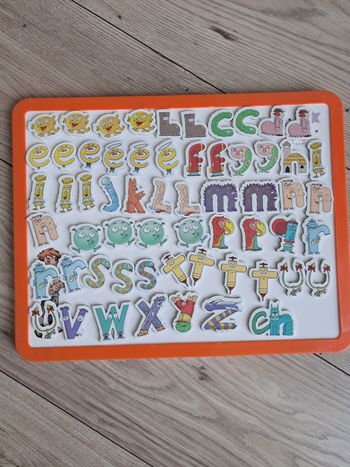 a a a a b b c c d d
e e e e e e f f g g h i
i i i j k l l m m n n
n o o o o p p r
r r s s s t t t t u u
u v w x y z ch